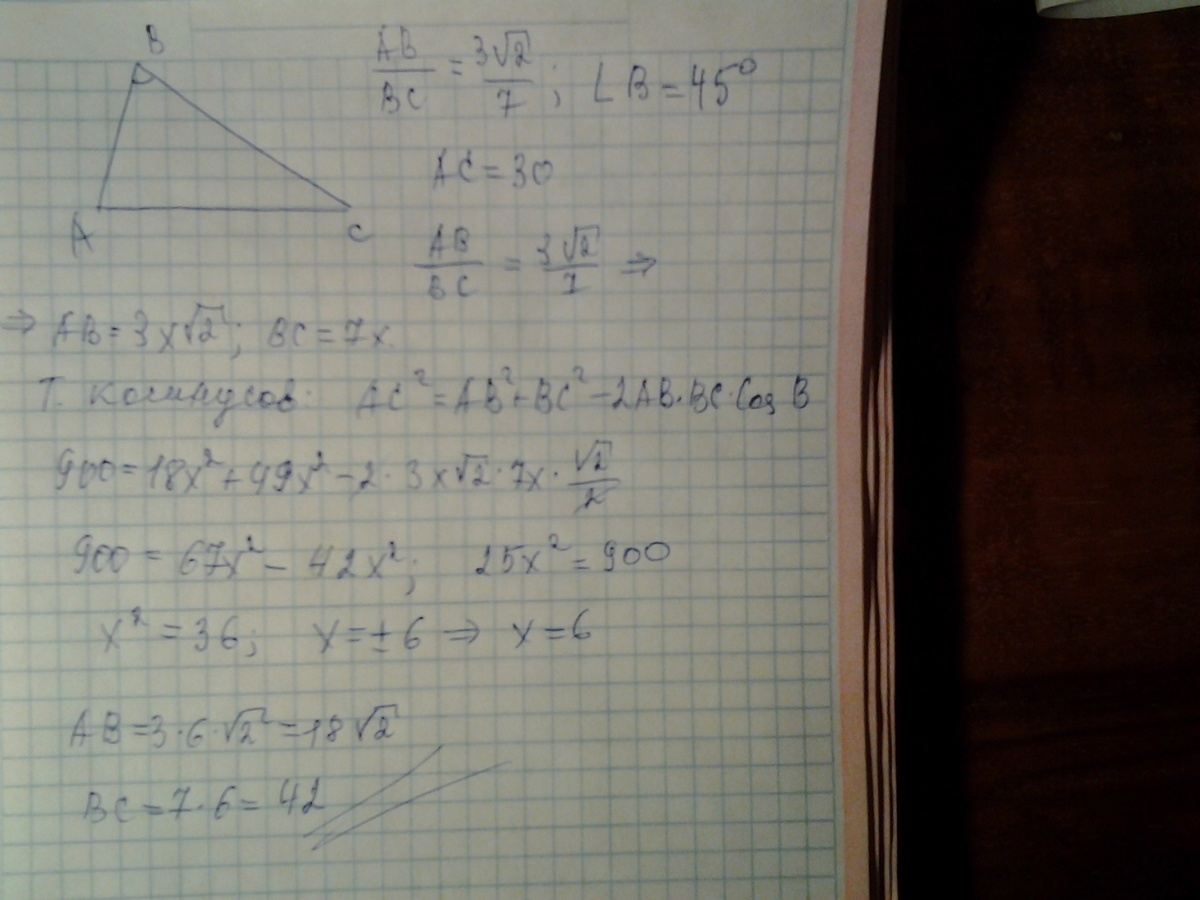 B
AB/BC = 3√2/7 ; ∠B = 45°
AC = 30
A C
AB/BC = 3√2/7 ⇒
⇒ AB = 3x√2; BC = 7x.
Т. косинусов: AC² = AB² + BC² - 2AB·BC·Cos B
900 = 18x² + 49x² - 2·3x√2·7x·√2/2
900 = 67x² - 42x²; 25x² = 900
x² = 36; x = ±6 ⇒ x = 6
AB = 3·6·√2 = 18√2
BC = 7·6 = 42